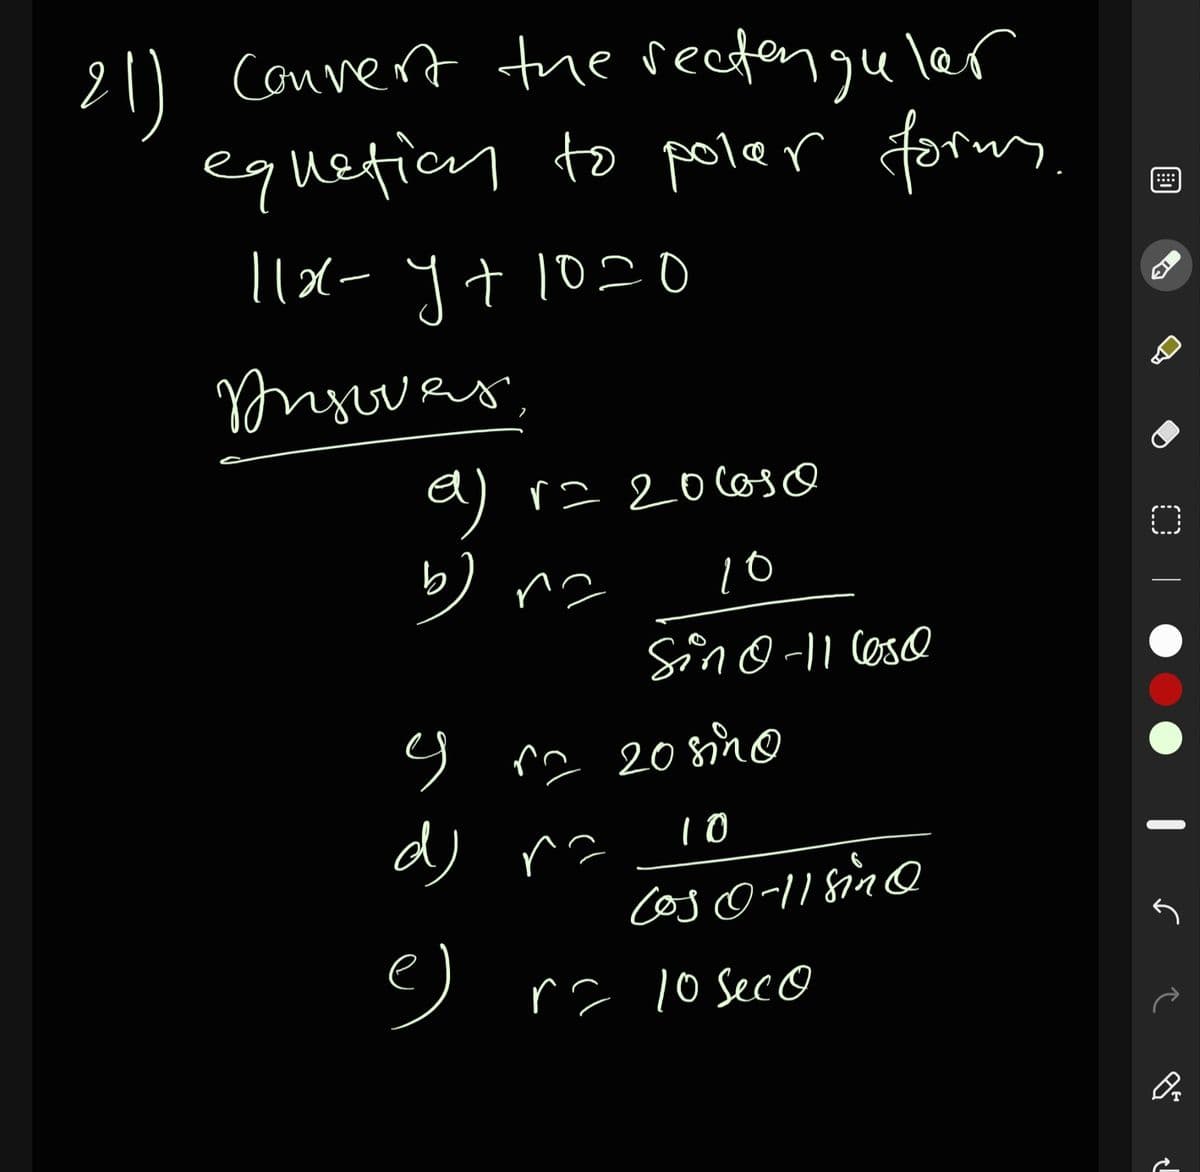 21) Convert the rectengular
equation to polar form.
11x - y + 10 = 0
Answer,
a) r = 20 cosθ
b) r = 10
sinθ - 11 cosθ
c) r = 20 sinθ
d) r = 10
cosθ - 11 sinθ
e) r = 10 secθ